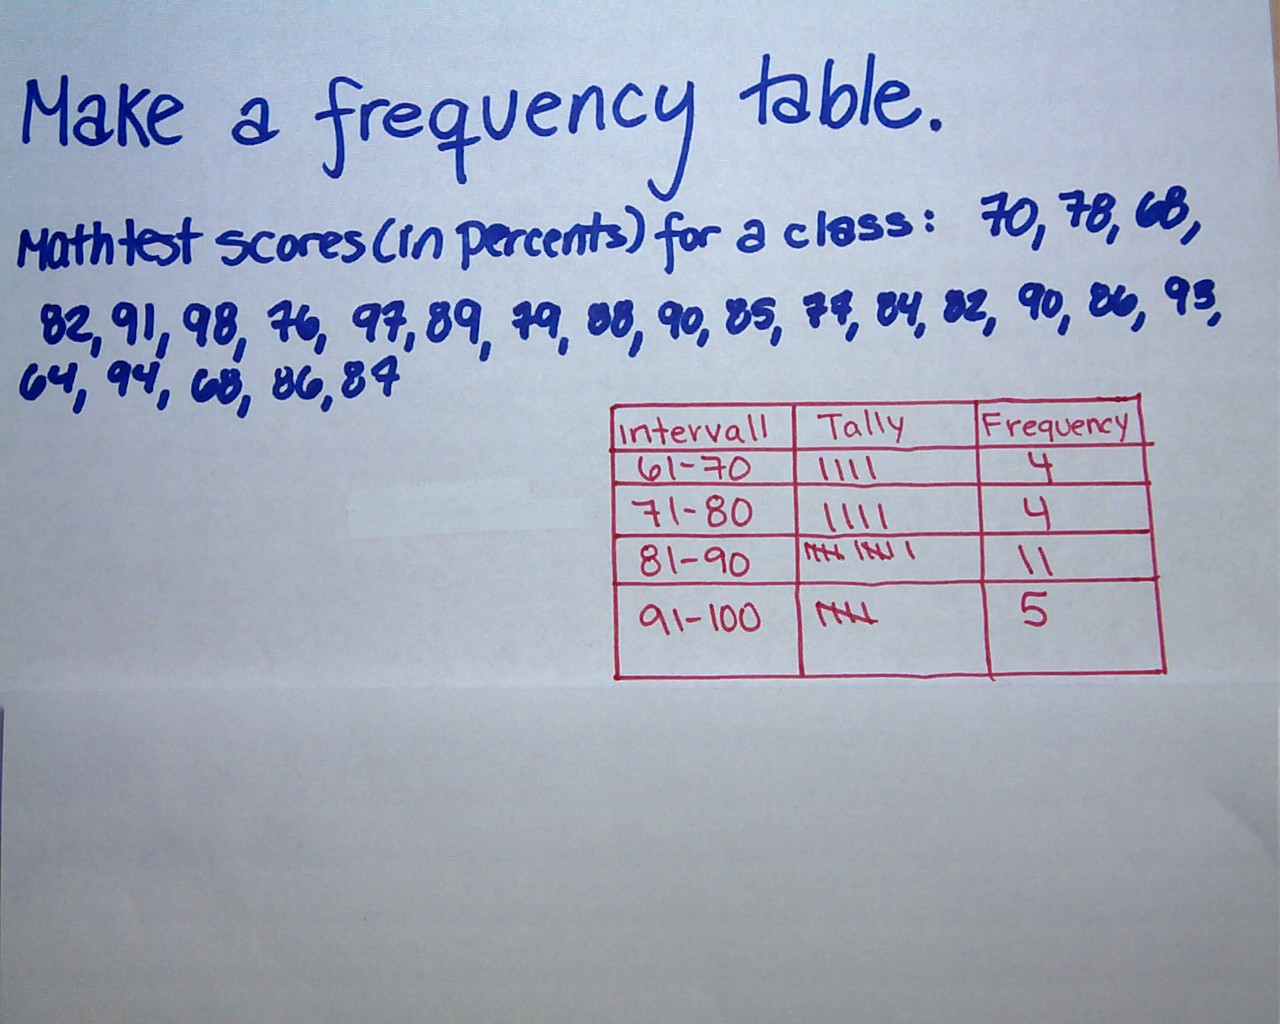 Make a frequency table.
Math test scores (in percents) for a class: 70, 78, 68,
82, 91, 98, 76, 97, 89, 79, 88, 90, 85, 77, 84, 82, 90, 86, 93,
64, 94, 68, 86, 87
Intervall Tally Frequency
61-70 |||| 4
71-80 |||| 4
81-90 11
91-100 5